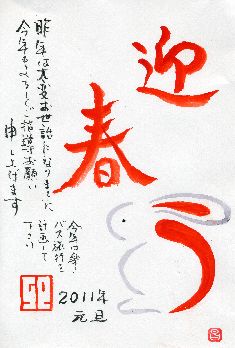 迎春
昨年は大変お世話になりました
今年もよろしくご指導お願い
申し上げます
今年
バス旅行を
計画して
下さい
2011年
元旦